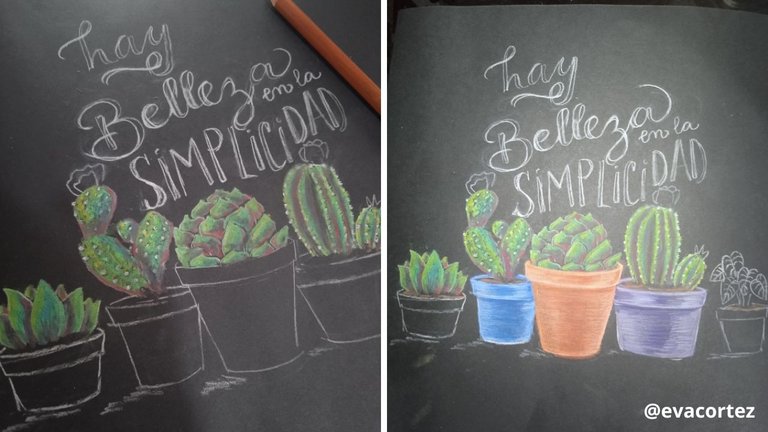 hay
Belleza
en la
SIMPLICIDAD
hay
Belleza
en la
SIMPLICIDAD
@evacortez